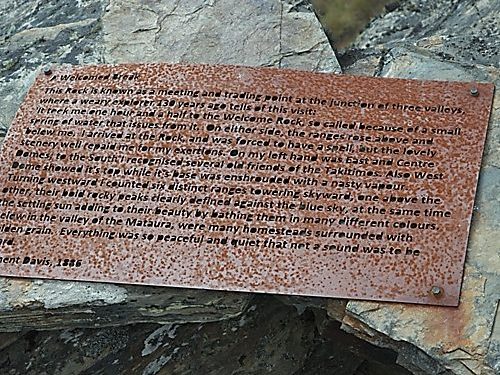 Welcomed Break
This Rock is known as a meeting and trading point at the junction of three valleys
where a weary explorer 130 years ago tells of his visit:
me an hour and a half to the Welcome Rock, so called because of a small
spring of water that issues from it. On either side, the range rose above and
below me. I arrived at the Rock and was forced to have a spell, but the lovely
scenery well repaid me for my exertions. On my left hand was East and Centre
Domes, to the South I recognised several old friends of the Takitimos. Also West
Dome showed its top while its base was enshrouded with a nasty vapour
Westward I counted six distinct ranges, towering skyward, one above the
other, their bold rocky peaks clearly defined against the blue sky, at the same time
the setting sun adding to their beauty by bathing them in many different colours.
Below in the valley of the Mataura, were many homesteads surrounded with
golden grain. Everything was so peaceful and quiet that not a sound was to be
Davis, 1886